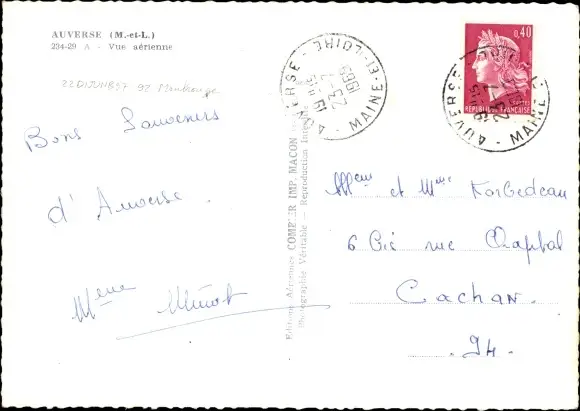 AUVERSE (M.-et-L.)
234-29 A - Vue aérienne
92 Montrouge
Bons Souvenirs
d'Auverse.
Mme Minot
Editions Aériennes COMBIER IMP. MACON
Photographie Véritable - Reproduction Inter
AUVERSE - MAINE-ET-LOIRE
23-7
1969
0,40
REPUBLIQUE FRANÇAISE
AUVERSE - MAINE
23-7
Mme et Mme Korbedeau
6 Bis rue Chaptal
Cachan.
94.